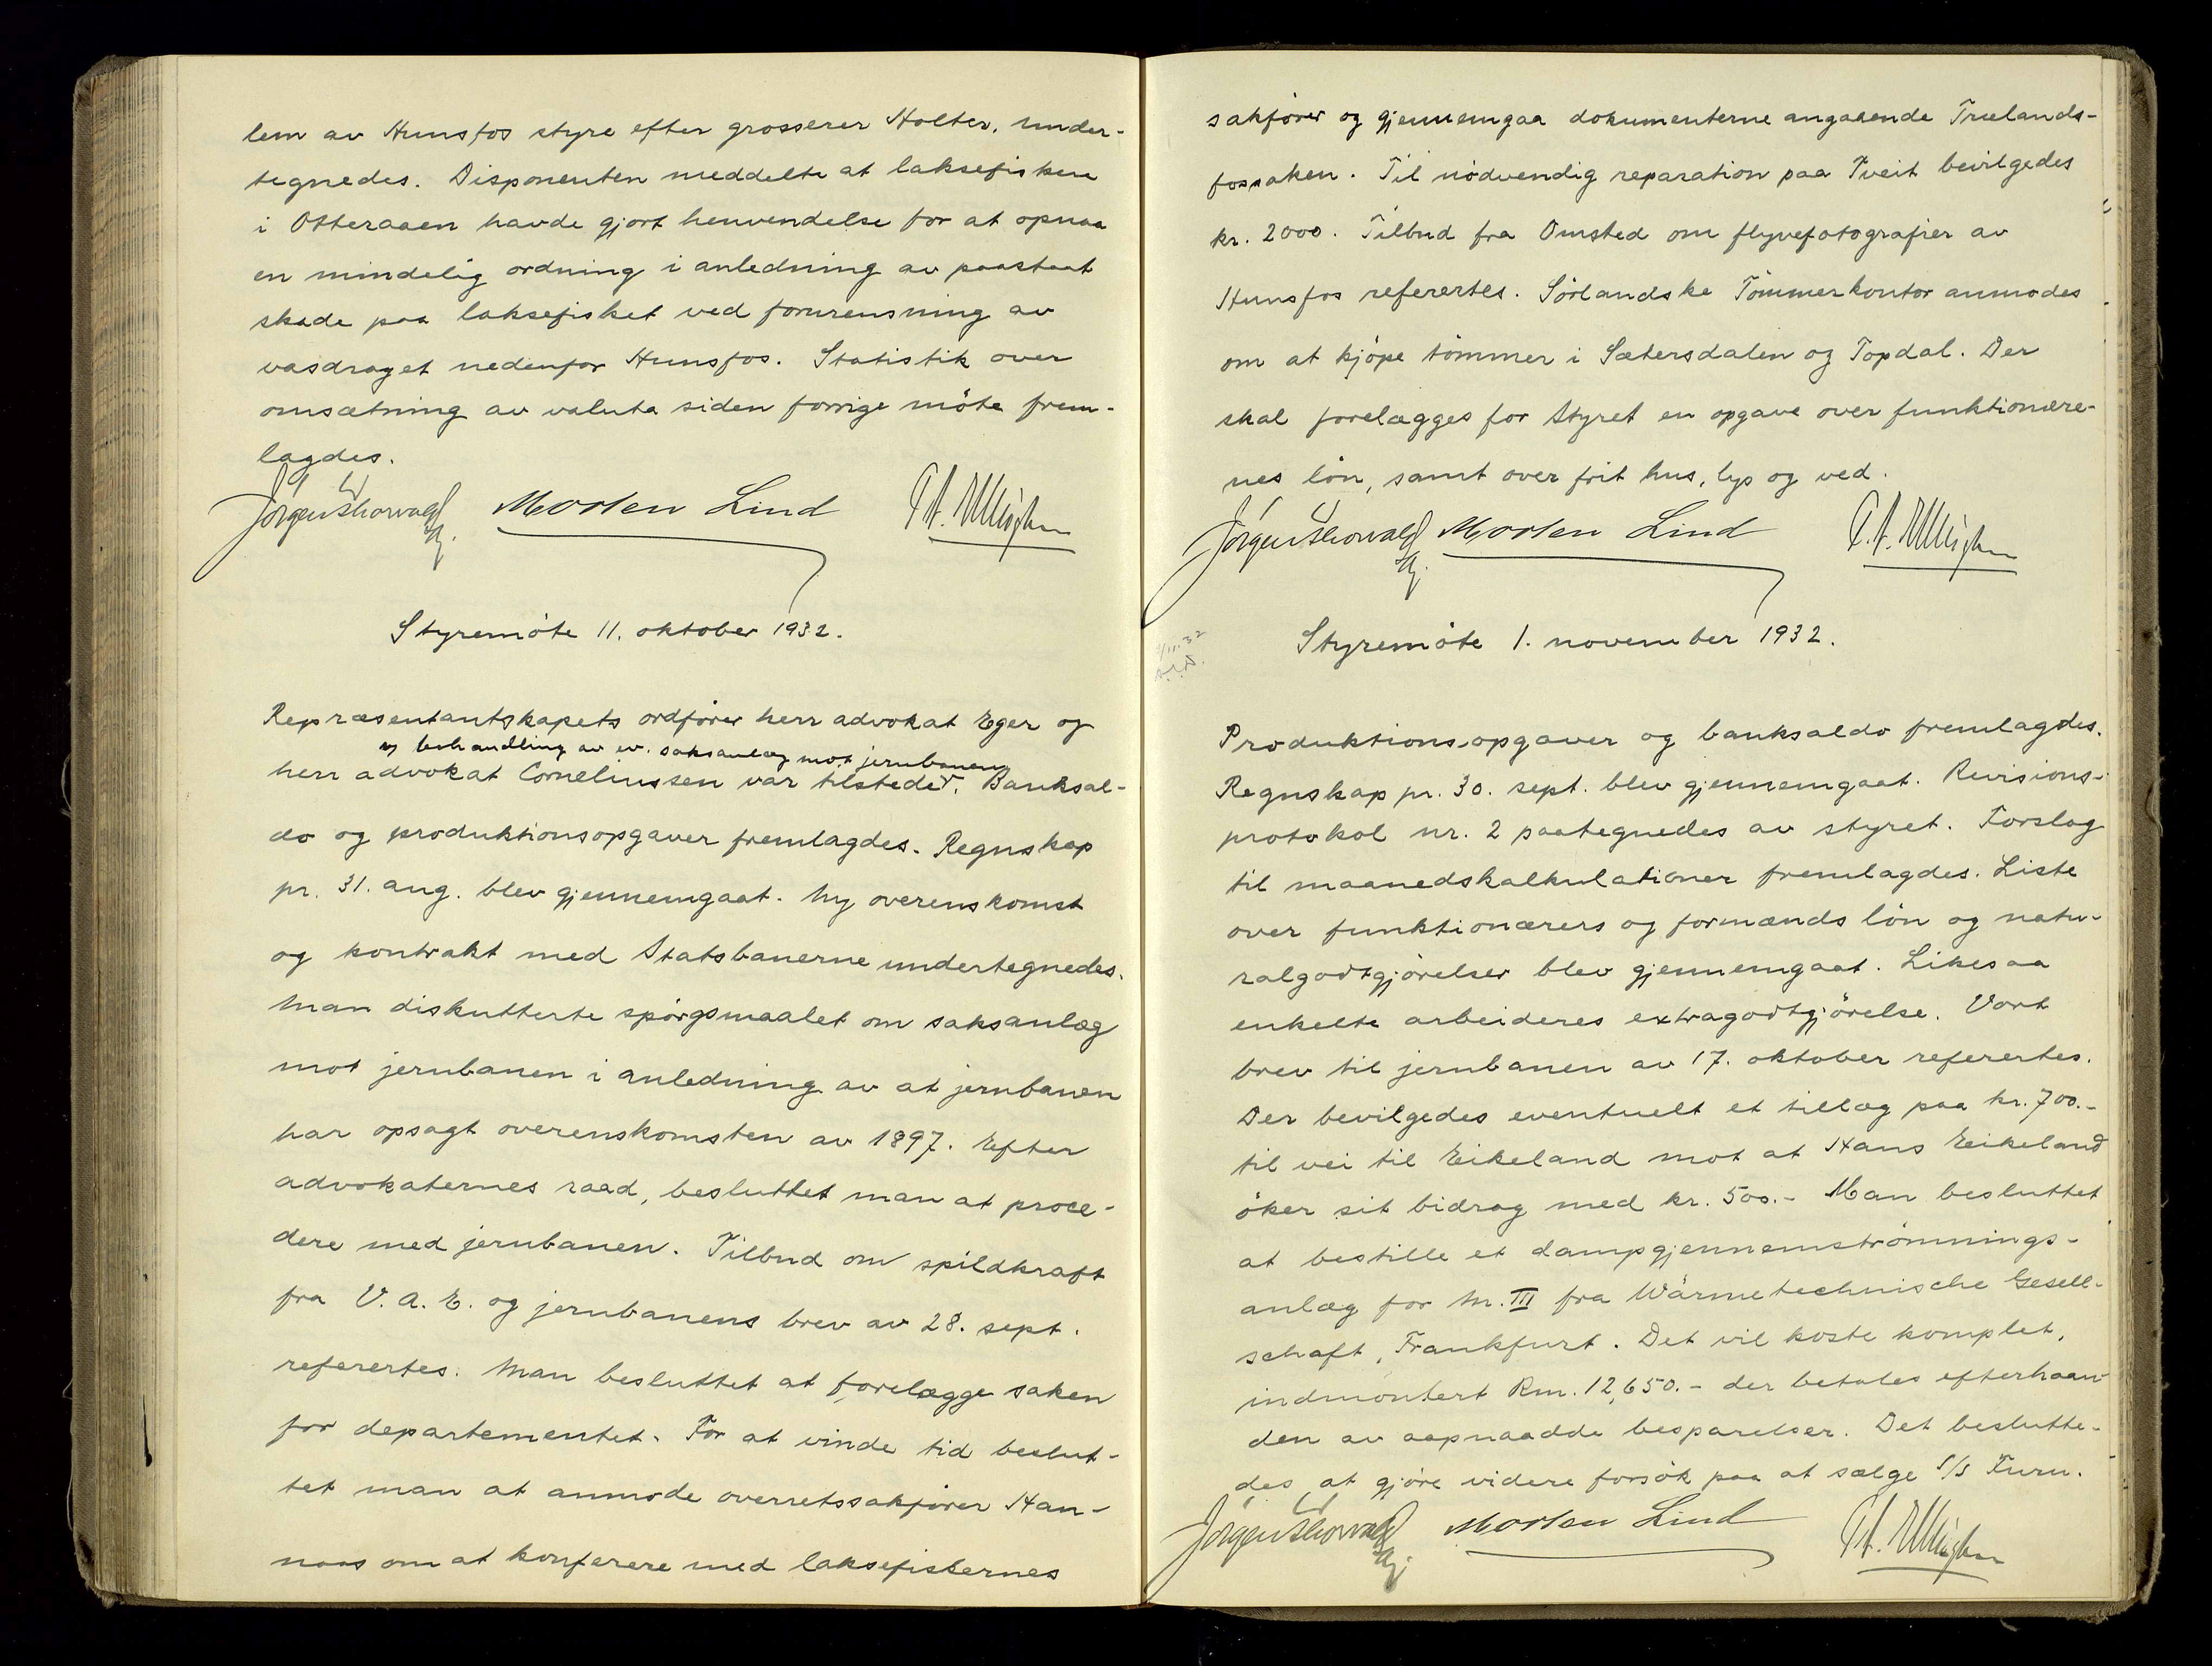 lem av Hunsfos styre efter grosserer Holter, under-
tegnedes. Disponenten meddelte at laksefiskere
i Otteraaen havde gjort henvendelse for at opnaa
en mindelig ordning i anledning av paastaat
skade paa laksefisket ved forurensning av
vasdraget nedenfor Hunsfos. Statistik over
omsætning av valuta siden forrige möte frem-
lagdes.
Jörgen Thorvald Morten Lind
Styremöte 11. oktober 1932.
Repræsentantskapets ordförer herr advokat Eger og
v behandling av ev. saksanlæg mot jernbanen
herr advokat Corneliussen var tilsteder. Banksal-
do og produktionsopgaver fremlagdes. Regnskap
pr. 31. aug. blev gjennemgaat. Ny overenskomst
og kontrakt med Statsbanerne undertegnedes.
Man diskutterte spörgsmaalet om saksanlæg
mot jernbanen i anledning av at jernbanen
har opsagt overenskomsten av 1897. Efter
advokaternes raad, besluttet man at proce-
dere med jernbanen. Tilbud om spildkraft
fra V. A. E. og jernbanens brev av 28. sept.
referertes. Man besluttet at forelægge saken
for departementet. For at vinde tid beslut-
tet man at anmode overretssakförer Han-
naas om at konferere med laksefiskernes
sakförer og gjennemgaa dokumenterne angaaende Truelands-
fossaken. Til nödvendig reparation paa Tveit bevilgedes
kr. 2000. Tilbud fra Omsted om flyvefotografier av
Hunsfos refertes. Sörlandske Tömmerkontor anmodes
om at kjöpe tömmer i Sætersdalen og Topdal. Der
skal forelægges for Styret en opgave over funktionære-
nes lön, samt over frit hus, lys og ved.
Jörgen Thorvald Morten Lind
Styremöte 1. november 1932.
Produktionsopgaver og banksaldo fremlagdes.
Regnskap pr. 30. sept. blev gjennemgaat. Revisions-
protokol nr. 2 paategnedes av styret. Forslag
til maanedskalkulationer fremlagdes. Liste
over funktionærers og formænds lön og natu-
ralgodtgjörelser blev gjennemgaat. Likesaa
enkelte arbeideres extragodtgjörelse. Vort
brev til jernbanen av 17. oktober referertes.
Der bevilgedes eventuelt et tillæg paa kr. 700.-
til vei til Eikeland mot at Hans Eikeland
öker sit bidrag med kr. 500.- Man besluttet
at bestille et dampgjennemströmnings-
anlæg for M. III fra Wärmetechnische Gesell-
schaft, Frankfurt. Det vil koste komplet,
indmontert Rm. 12,650.- der betales efterhaan-
den av aapnaadde besparelser. Det beslutte-
des at gjöre videre forsök paa at sælge S/S Furu.
Jörgen Thorvald Morten Lind